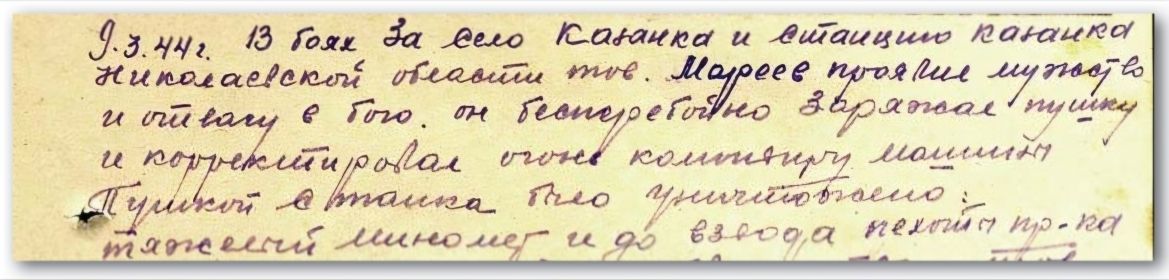 9.3.44г. В боях за село Казанка и станцию Казанка
Николаевской области тов. Мареев проявил мужество
и отвагу в бою. он бесперебойно заряжал пушку
и корректировал огонь командиру машины
Пушкой с танка было уничтожено:
тяжелый миномет и до взвода пехоты пр-ка